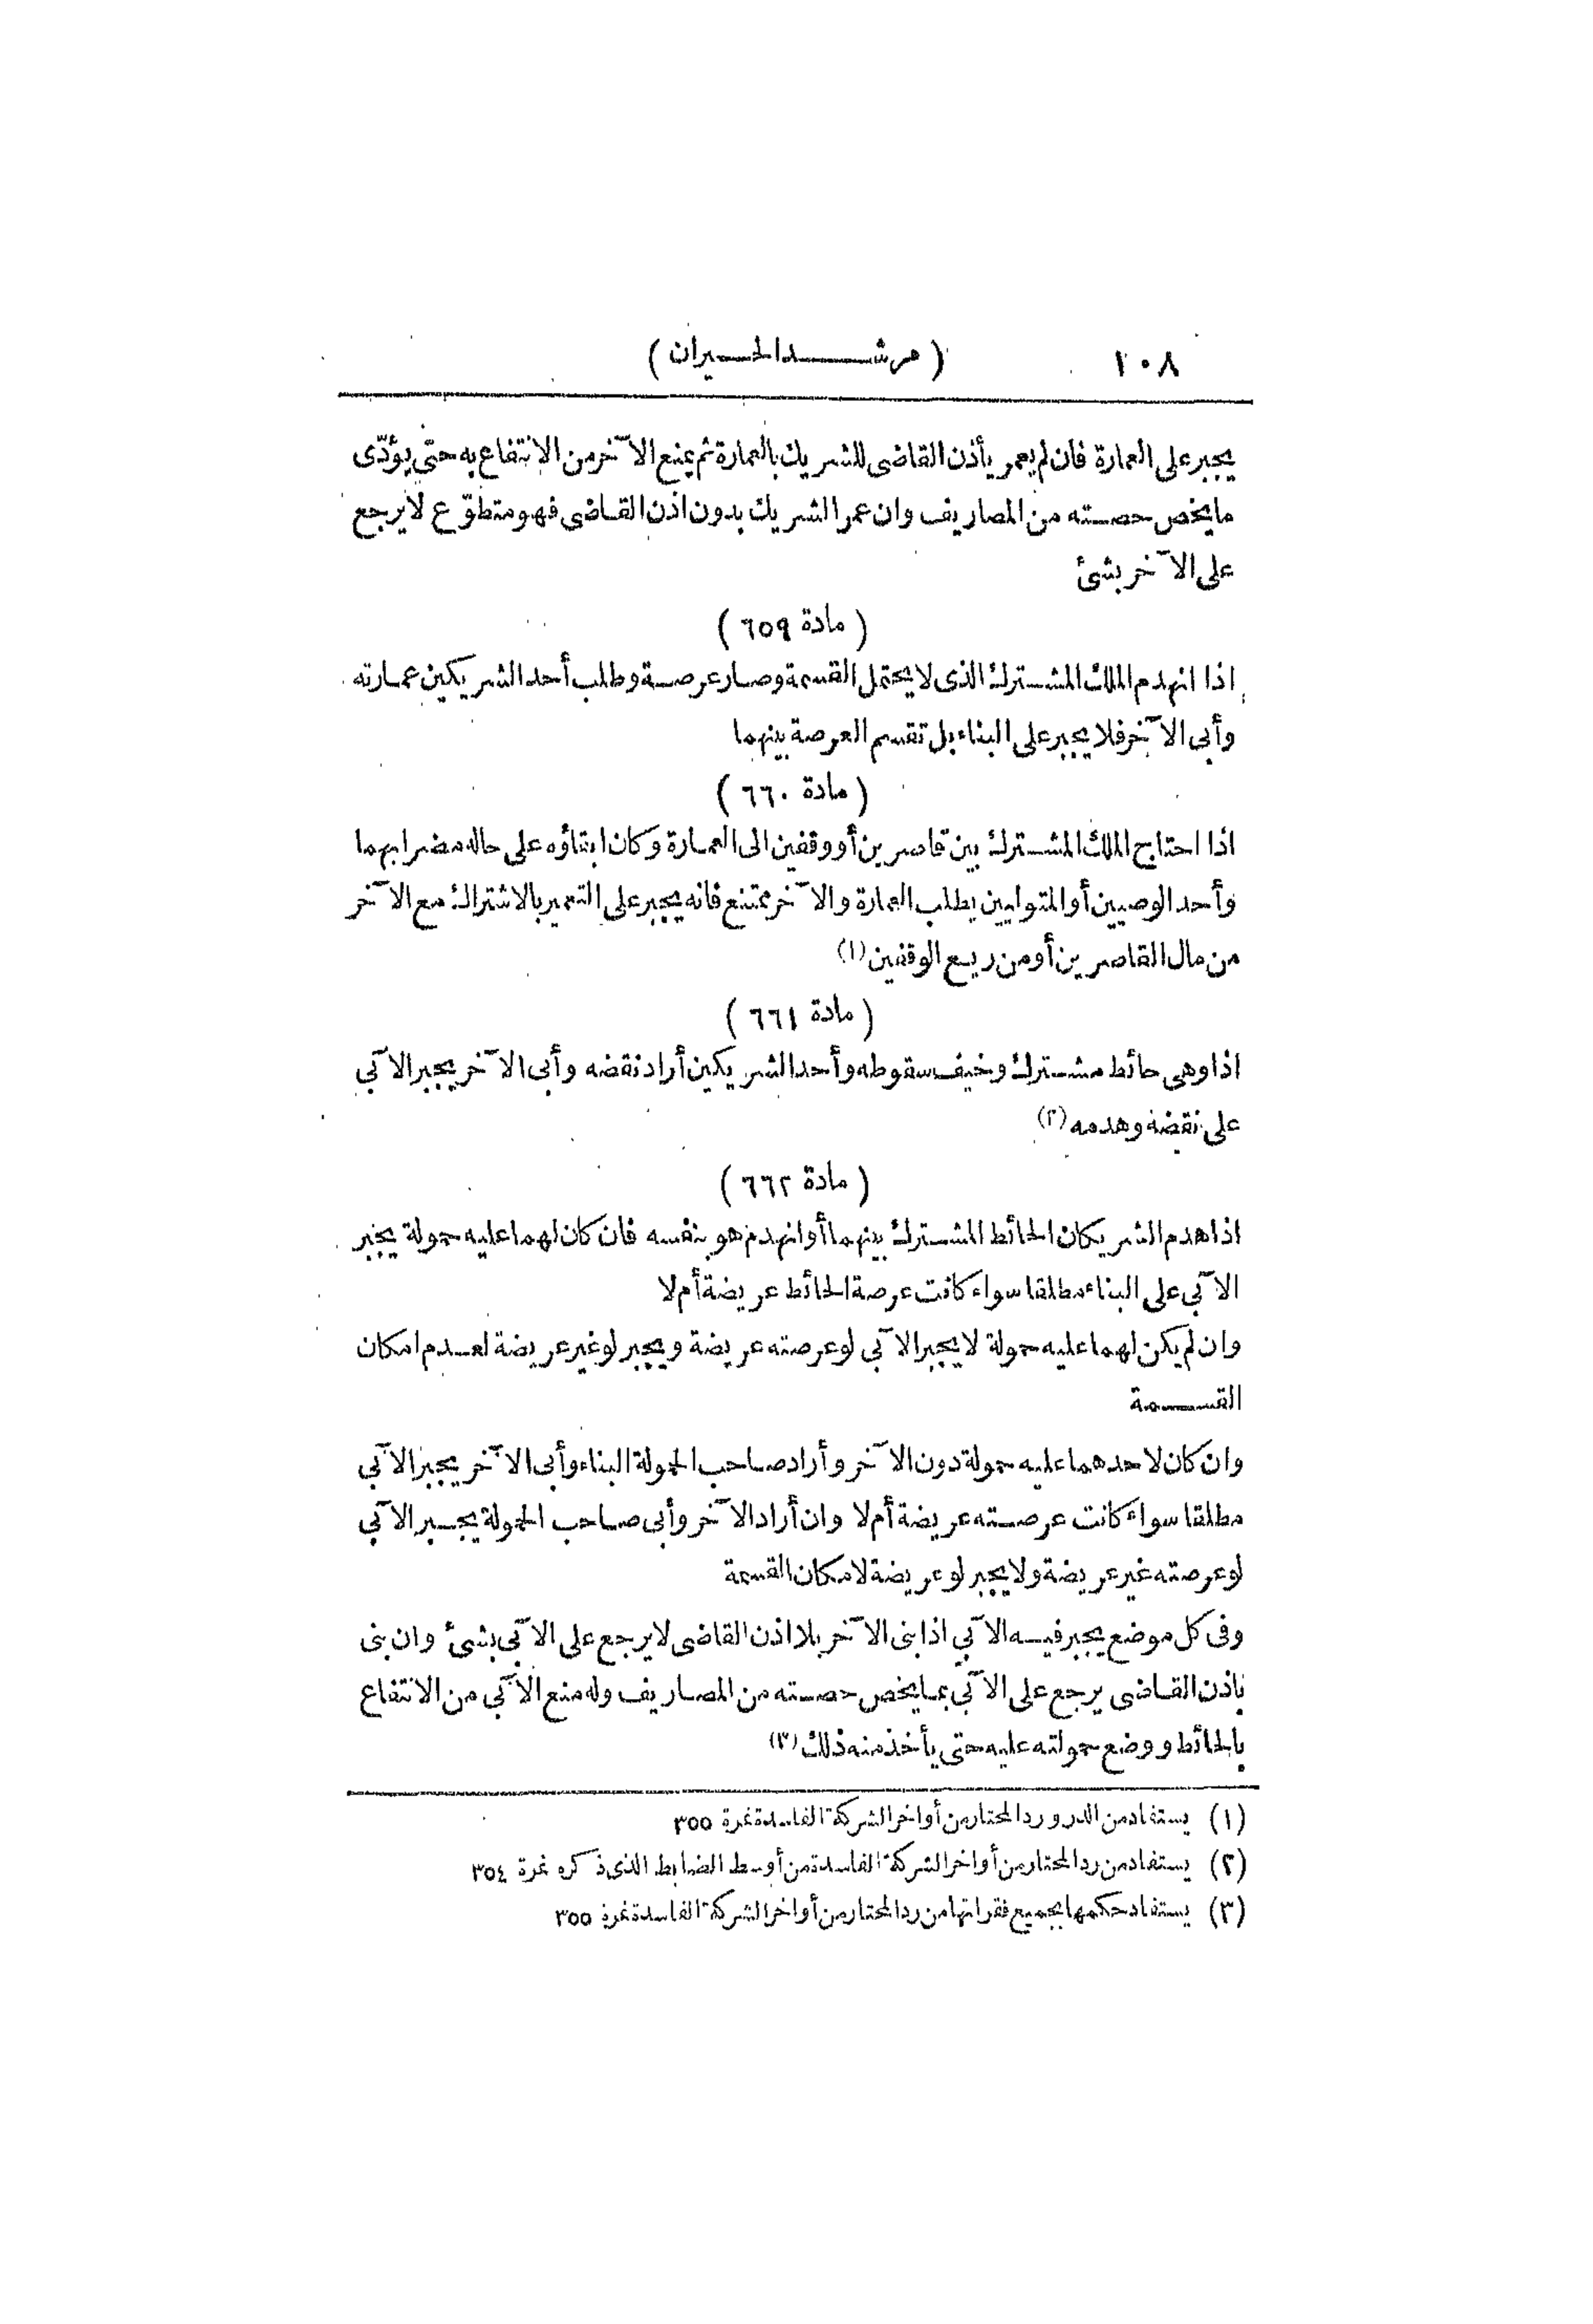 ١٠٨ (مرشد الحيران)
يجبر على العمارة فان لم يعمر يأذن القاضى للشريك بالعمارة ثم يمنع الآخر من الانتفاع به حتى يؤدّى
ما يخص حصته من المصاريف وان عمر الشريك بدون اذن القاضى فهو متطوّع لا يرجع
على الآخر بشئ
(مادة ٦٥٩)
اذا انهدم الملك المشترك الذى لا يحتمل القسمة وصار عرصة وطلب أحد الشريكين عمارته
وأبى الآخر فلا يجبر على البناء بل تقسم العرصة بينهما
(مادة ٦٦٠)
اذا احتاج الملك المشترك بين قاصرين أو وقفين الى العمارة وكان ابقاؤه على حاله مضرا بهما
وأحد الوصيين أو المتوليين يطلب العمارة والآخر ممتنع فانه يجبر على التعمير بالاشتراك مع الآخر
من مال القاصرين أو من ريع الوقفين (١)
(مادة ٦٦١)
اذا وهى حائط مشترك وخيف سقوطه وأحد الشريكين أراد نقضه وأبى الآخر يجبر الآبى
على نقضه وهدمه (٢)
(مادة ٦٦٢)
اذا هدم الشريكان الحائط المشترك بينهما أو انهدم هو بنفسه فان كان لهما عليه حمولة يجبر
الآبى على البناء مطلقا سواء كانت عرصة الحائط عريضة أم لا
وان لم يكن لهما عليه حمولة لا يجبر الآبى لو عرصته عريضة ويجبر لو غير عريضة لعدم امكان
القسمة
وان كان لاحدهما عليه حمولة دون الآخر وأراد صاحب الحمولة البناء وأبى الآخر يجبر الآبى
مطلقا سواء كانت عرصته عريضة أم لا وان أراد الآخر وأبى صاحب الحمولة يجبر الآبى
لو عرصته غير عريضة ولا يجبر لو عريضة لامكان القسمة
وفى كل موضع يجبر فيه الآبى اذا بنى الآخر بلا اذن القاضى لا يرجع على الآبى بشئ وان بنى
باذن القاضى يرجع على الآبى بما يخص حصته من المصاريف وله منع الآبى من الانتفاع
بالحائط ووضع حمولته عليه حتى يأخذ منه ذلك (٣)
(١) يستفاد من الدر ورد المحتار من أواخر الشركة الفاسدة نمرة ٣٥٥
(٢) يستفاد من رد المحتار من أواخر الشركة الفاسدة من أوسط الضابط الذى ذكره نمرة ٣٥٤
(٣) يستفاد حكمها بجميع فقراتها من رد المحتار من أواخر الشركة الفاسدة نمرة ٣٥٥